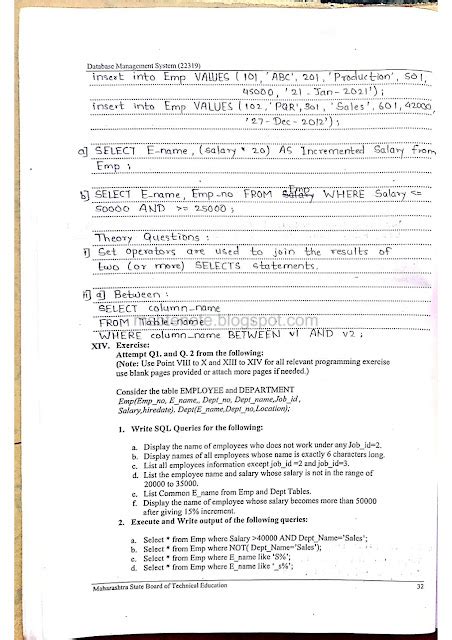 Database Management System (22319)
insert into Emp VALUES (101, 'ABC', 201, 'Production', 501,
45000, '21-Jan-2021');
insert into Emp VALUES (102, 'PQR', 301, 'Sales', 601, 42000,
'27-Dec-2012');
a] SELECT E-name, (salary * 20) AS Incremented Salary from
Emp;
b] SELECT E-name, Emp-no FROM Emp WHERE Salary <=
50000 AND >= 25000;
Theory Questions:
i] Set operators are used to join the results of
two (or more) SELECTS statements.
ii] a] Between:
SELECT column-name
FROM table-name
WHERE column-name BETWEEN v1 AND v2;
XIV. Exercise:
Attempt Q1. and Q. 2 from the following:
(Note: Use Point VIII to X and XIII to XIV for all relevant programming exercise
use blank pages provided or attach more pages if needed.)
Consider the table EMPLOYEE and DEPARTMENT
Emp(Emp_no, E_name,, Dept_no, Dept_name,Job_id,
Salary,hiredate). Dept(E_name,Dept_no,Location);
1. Write SQL Queries for the following:
a. Display the name of employees who does not work under any Job_id=2.
b. Display names of all employees whose name is exactly 6 characters long.
c. List all employees information except job_id =2 and job_id=3.
d. List the employee name and salary whose salary is not in the range of
20000 to 35000.
e. List Common E_name from Emp and Dept Tables.
f. Display the name of employee whose salary becomes more than 50000
after giving 15% increment.
2. Execute and Write output of the following queries:
a. Select * from Emp where Salary >40000 AND Dept_Name='Sales';
b. Select * from Emp where NOT( Dept_Name='Sales');
c. Select * from Emp where E_name like 'S%';
d. Select * from Emp where E_name like '_s%';
Maharashtra State Board of Technical Education 32